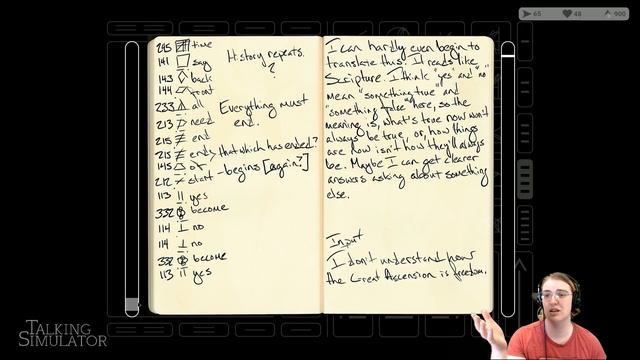 65
48
900
245 time
141 say
143 back
144 front
233 all
213 need
215 end
215 ends that which has ended?
145 or
212 start - begins [again?]
113 yes
332 become
114 no
114 no
332 become
113 yes
History repeats.
?
Everything must
end.
I can hardly even begin to
translate this. It reads like
Scripture. I think "yes" and "no"
mean "something true" and
"something false" here, so the
meaning is, what's true now won't
always be true, or, how things
are now isn't how they'll always
be. Maybe I can get clearer
answers asking about something
else.
Input
I don't understand how
the Great Ascension is freedom.
TALKING
SIMULATOR